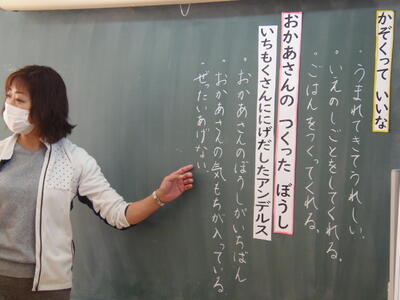 かぞくって いいな
・うまれてきてうれしい。
・いえのしごとをしてくれる。
・ごはんをつくってくれる。
おかあさんの つくった ぼうし
いちもくさんににげだしたアンデルス
・おかあさんのぼうしがいちばん
・おかあさんの気もちが入っている。
・ぜったいあげない。